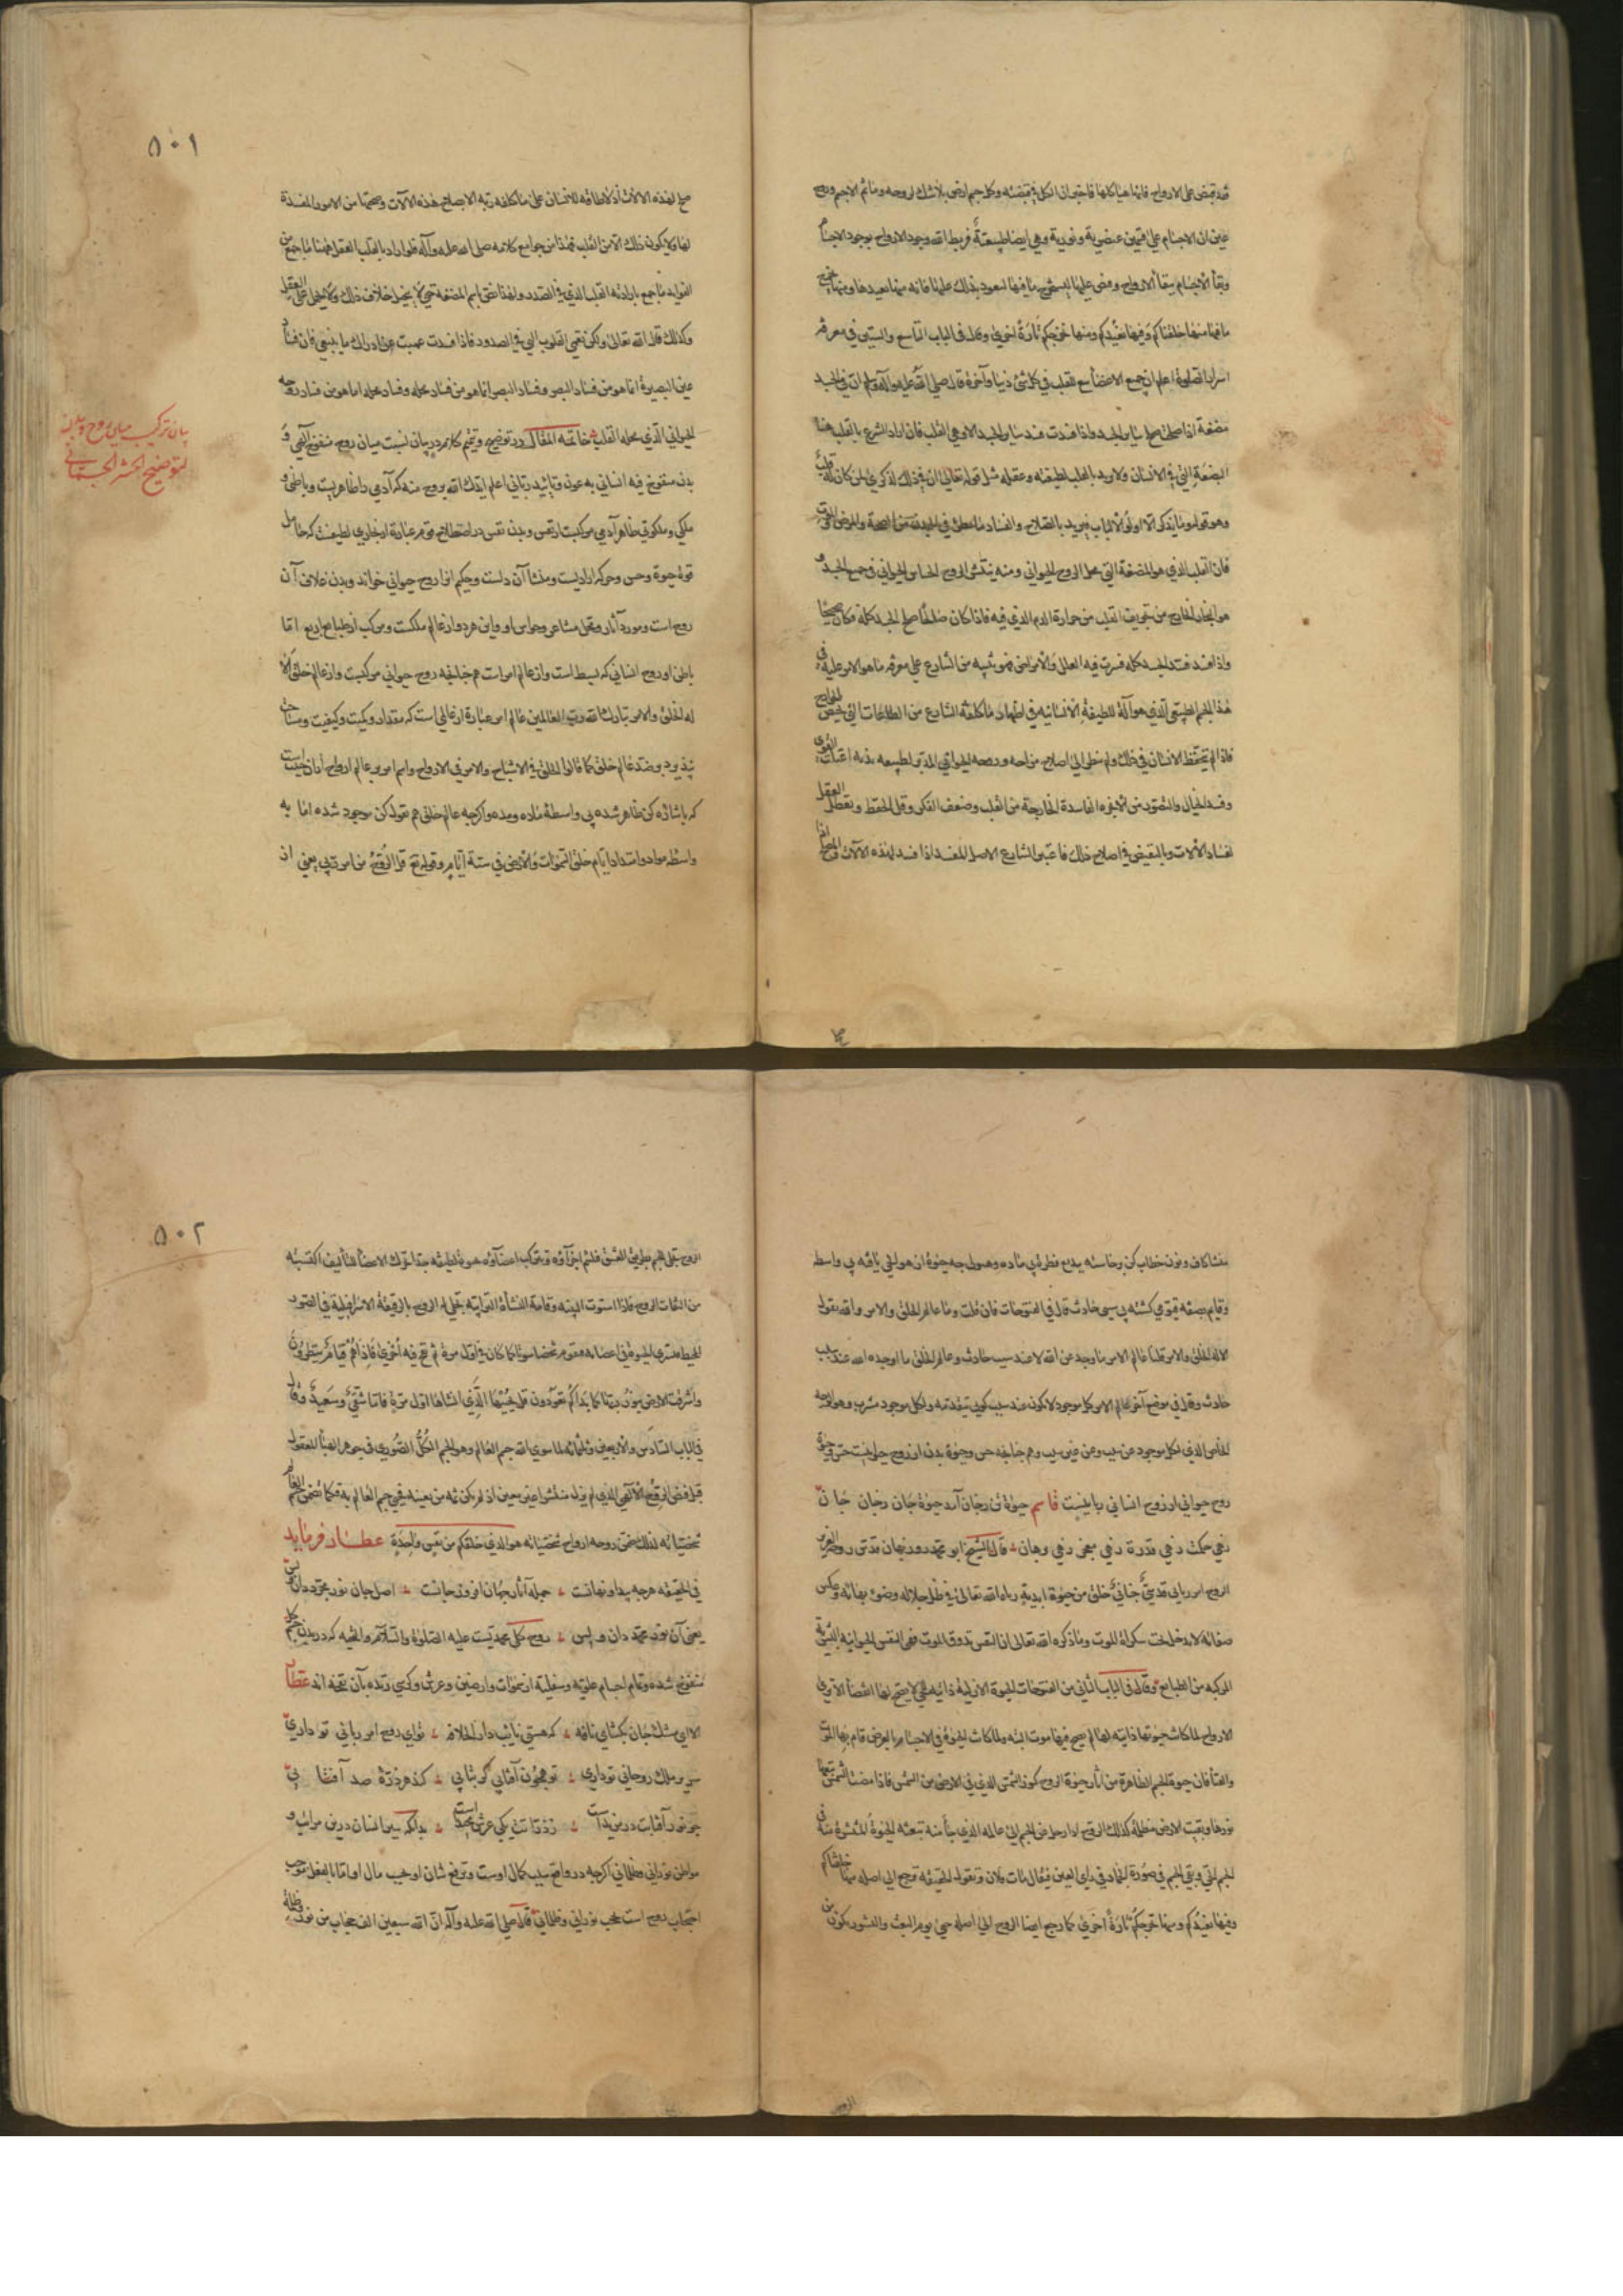 قد قبض على الارواح فانها هياكلها فاحتوى الكل في قبضته وكل جسم ارض بلا شك لروحه وما ثم الا جسم وروح
غير ان الاجسام على قسمين عنصرية ونورية وهي ايضا طبيعية فربط الله وجود الارواح بوجود الاجسام
وبقاء الاجسام ببقاء الارواح وقبض عليها ليستخرج ما فيها ليعود بذلك عليها فانه منها يعيدها ومنها يخرج
ما فيها منها خلقناكم وفيها نعيدكم ومنها نخرجكم تارة اخرى وقال في الباب التاسع والستين في معرفة
اسرار الصلوة اعلم ان جميع الاعضاء تبع للقلب في كل شئ دنيا وآخرة قال صلى الله عليه وآله وسلم ان في الجسد
مضغة اذا صلحت صلح ساير الجسد واذا فسدت فسد ساير الجسد الا وهي القلب فان اراد الشرع بالقلب هنا
المضغة التي في الانسان ولا يريد بالقلب لطيفته وعقله مثل قوله تعالى ان في ذلك لذكرى لمن كان له قلب
وهو قوله وما يذكر الا اولوا الالباب فيريد بالصلاح والفساد ما يطرأ في البدن من الصحة والمرض والموت
فان القلب الذي هو المضغة التي محل الروح الحيواني ومنه ينتشر الروح الحساس الحيواني في جميع الجسد و
هو البخار الخارج من تجويف القلب من حرارة الدم الذي فيه فاذا كان صالحا صلح الجسد كله فكان صحيحا
واذا فسد فسد الجسد كله فسرت فيه العلل والامراض فهو تنبيه من الشارع على معرفة ما هو الامر عليه في
هذا الجسم الطبيعي الذي هو آلة للطيفة الانسانية في اظهار ما كلفه الشارع من الطاعات التي تخص الجوارح
فاذا لم يتحفظ الانسان في ذلك ولم ينظر الى اصلاح مزاجه وروحه الحيواني المدبر لطبيعة بدنه اعتلت القوى
وفسد الخيال والتصور من الابخرة الفاسدة الخارجة من القلب وضعف الفكر وقل الحفظ وتعطل العقل
لفساد الآلات وبالنقيض في اصلاح ذلك فاعتبر الشارع الاصل المفسد اذا فسد لهذه الآلات
٥٠١
لهذه الآلات اذ لا طاقة للانسان على ما كلفه ربه الا بصلاح هذه الآلات وصحتها من الامور المفسدة
لها ولا يكون ذلك الا من القلب فهذا من جوامع كلامه صلى الله عليه وآله فلو اراد بالقلب العقل هنا ما جمع من
الفوايد ما جمع بارادته القلب الذي في الصدر ولهذا نص باسم المضغة حتى لا يتخيل خلاف ذلك ولا يحمل على العقل
وكذلك قال الله تعالى ولكن تعمى القلوب التي في الصدور فاذا فسدت عميت عن ادراك ما ينبغي فان فساد
عين البصيرة انما هو من فساد البصر وفساد البصر انما هو من فساد محله وفساد محله انما هو من فساد روحه
الحيواني الذي محله القلب خاتمة المقال در توضيح وتتميم كلام در بيان نسبت ميان روح منفوخ الهي و
بدن منفوخ فيه انساني به عون وتاييد رباني اعلم ايدك الله بروح منه كه آدمي را ظاهريست وباطني و
ملكي وملكوتي ظاهر آدمي مركبست از نفس وبدن نفس در اصطلاح قوم عبارة از بخاري لطيفست كه حامل
قوة حيوة وحس وحركة اراديست ومنشأ آن دلست وحكيم آنرا روح حيواني خواند وبدن غلاف آن
روح است ومورد آثار ومحل مشاعر وحواس او واين هر دو از عالم ملكست ومركب از طبايع اربع اما
باطن او روح انساني كه بسيط است واز عالم امر است همچنانچه روح حيواني مركبست واز عالم خلق الا
له الخلق والامر تبارك الله رب العالمين عالم امر عبارة از عالمي است كه مقدار وكميت وكيفيت ومساحت
نپذيرد بر ضد عالم خلق كما قالوا الخلق في الاشباح والامر في الارواح واسم امر بر عالم ارواح از آن جهتست
كه باشارة كن ظاهر شده بى واسطة ماده ومده واگرچه عالم خلق هم بقول كن موجود شده اما به
واسطه مواد وامتداد ايام خلق السموات والارض في ستة ايام وقوله تع قل الروح من امر ربي يعني از
بيان تركيب ميان روح وبدن
لتوضيح الحشر الجسماني
منشأ كاف ونون خطاب كن برخاسته بديع فطرتى بى ماده وهيولى چه حيوة از هو الحي يافته بى واسطه
وقايم بصفه قيومي گشته بى سبق حادث قال في الفتوحات فان قلت وما عالم الخلق والامر والله يقول
الا له الخلق والامر قلنا عالم الامر ما وجد عن الله لا عند سبب حادث وعالم الخلق ما اوجده الله عند سبب
حادث وقال في موضع آخر عالم الامر كل موجود لا يكون عند سبب كوني يتقدمه ولكل موجود مشرب وهو الوجه
الخاص الذي لكل موجود عن سبب وعن غير سبب وهم چنانچه حس وحيوة بدن از روح حيوانيست حس وحيوة
روح حيواني از روح انساني ربانيست قاسم حيوة تن زجان آمد حيوة جان زجان جان
زهي حكمت زهي قدرة زهي معنى زهي برهان قال الشيخ ابو محمد روزبهان قدس روحه العزيز
الروح امر رباني قدسي جناني خلق من حيوة ابدية رباه الله تعالى في ظل جلاله وضوء بهائه وعكس
صفاته لا يدخل تحت سكرات الموت وما ذكره الله تعالى ان النفس تذوق الموت فهي النفس الحيوانية البشرية
المركبة من الطبايع وقال في الباب الثاني من الفتوحات الحيوة الازلية ذاتية للحي لا يصح لها انقضاء الا ترى
الارواح لما كانت حيوتها ذاتية لها لم يصح فيها موت البته ولما كانت الحيوة في الاجسام بالعرض قام بها الموت
والفناء فان حيوة الجسم الظاهرة من آثار حيوة الروح كنور الشمس الذي في الارض من الشمس فاذا مضت الشمس تبعها
نورها وبقيت الارض مظلمة كذلك الروح اذا رحل عن الجسم الى عالمه الذي جاء منه تبعته الحيوة المنتشرة منه في
الجسم الحي وبقي الجسم في صورة الجماد في راى العين فيقال مات فلان وتقول الحقيقة رجع الى اصله منها خلقناكم
وفيها نعيدكم ومنها نخرجكم تارة اخرى كما رجع ايضا الروح الى اصله حتى يوم البعث والنشور يكون من
٥٠٢
الروح تجلى للجسم بطريق العشق فتلتئم اجزاؤه وتتركب اعضاؤه بحيوة لطيفة جدا تحرك الاعضاء للتأليف اكتسبته
من التفات الروح فاذا استوت البنية وقامت النشأة الترابية تجلى له الروح بالرقيقة الاسرافيلية في الصور
المحيط فتسري الحيوة في اعضائه فيقوم شخصا سويا كما كان في اول مرة ثم نفخ فيه اخرى فاذا هم قيام ينظرون
واشرقت الارض بنور ربها كما بدأكم تعودون قل يحييها الذي انشأها اول مرة فاما شقي وسعيد وقال
في الباب السادس والاربعين وثلثمائة لما سوى الله جسم العالم وهو الجسم الكل الصوري في جوهر الهباء المعقول
قبل فيض الروح الالهي الذي لم يزل منتشرا غير معين اذ لم يكن ثمه من يعينه فحيي جسم العالم به فكما تضمن جسم العالم
شخصياته كذلك ضمن روحه ارواح شخصياته هو الذي خلقكم من نفس واحدة عطار فرمايد
في الحقيقه هرچه پيدا ونهانست جمله آثار جهان افروز جانست اصل جان نور مجرد دان وبس
يعني آن نور محمد دان وبس روح كل محمديست عليه الصلوة والسلام والتحيه كه در بدن جسم كل
منفوخ شده وتمام اجسام علويه وسفليه از سموات وارضين وعرش وكرسي زنده بآن نفخه اند عطار
الا اى مشك جان بگشاى نافه كه هستي نايب دار الخلافه تواى روح امر رباني تو داري
سرير ملك روحاني تو داري تو همچون آفتابي گر بتابي كند هر ذره صد آفتابى
چو نور آفتابت در مزيد است ز ذراتت يكى عرش مجيد است بدانكه سير انسان درين مراتب و
مواطن نوراني وظلماني اگرچه در واقع سبب كمال اوست وترفع شان او بحسب مآل اما بالفعل موجب
احتجاب روح است بحجب نوراني وظلماني قال صلى الله عليه وآله ان الله سبعين الف حجاب من نور وظلمة